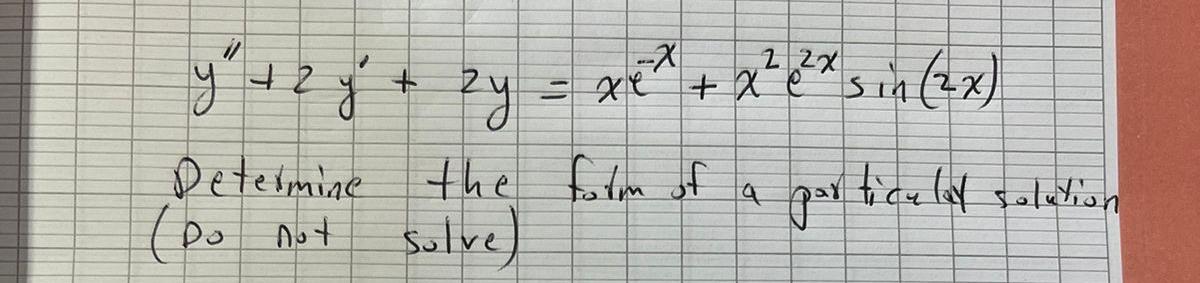 y'' + 2y' + 2y = xe^{-x} + x^2 e^{2x} sin(2x)
Determine the form of a particular solution
(Do not solve)